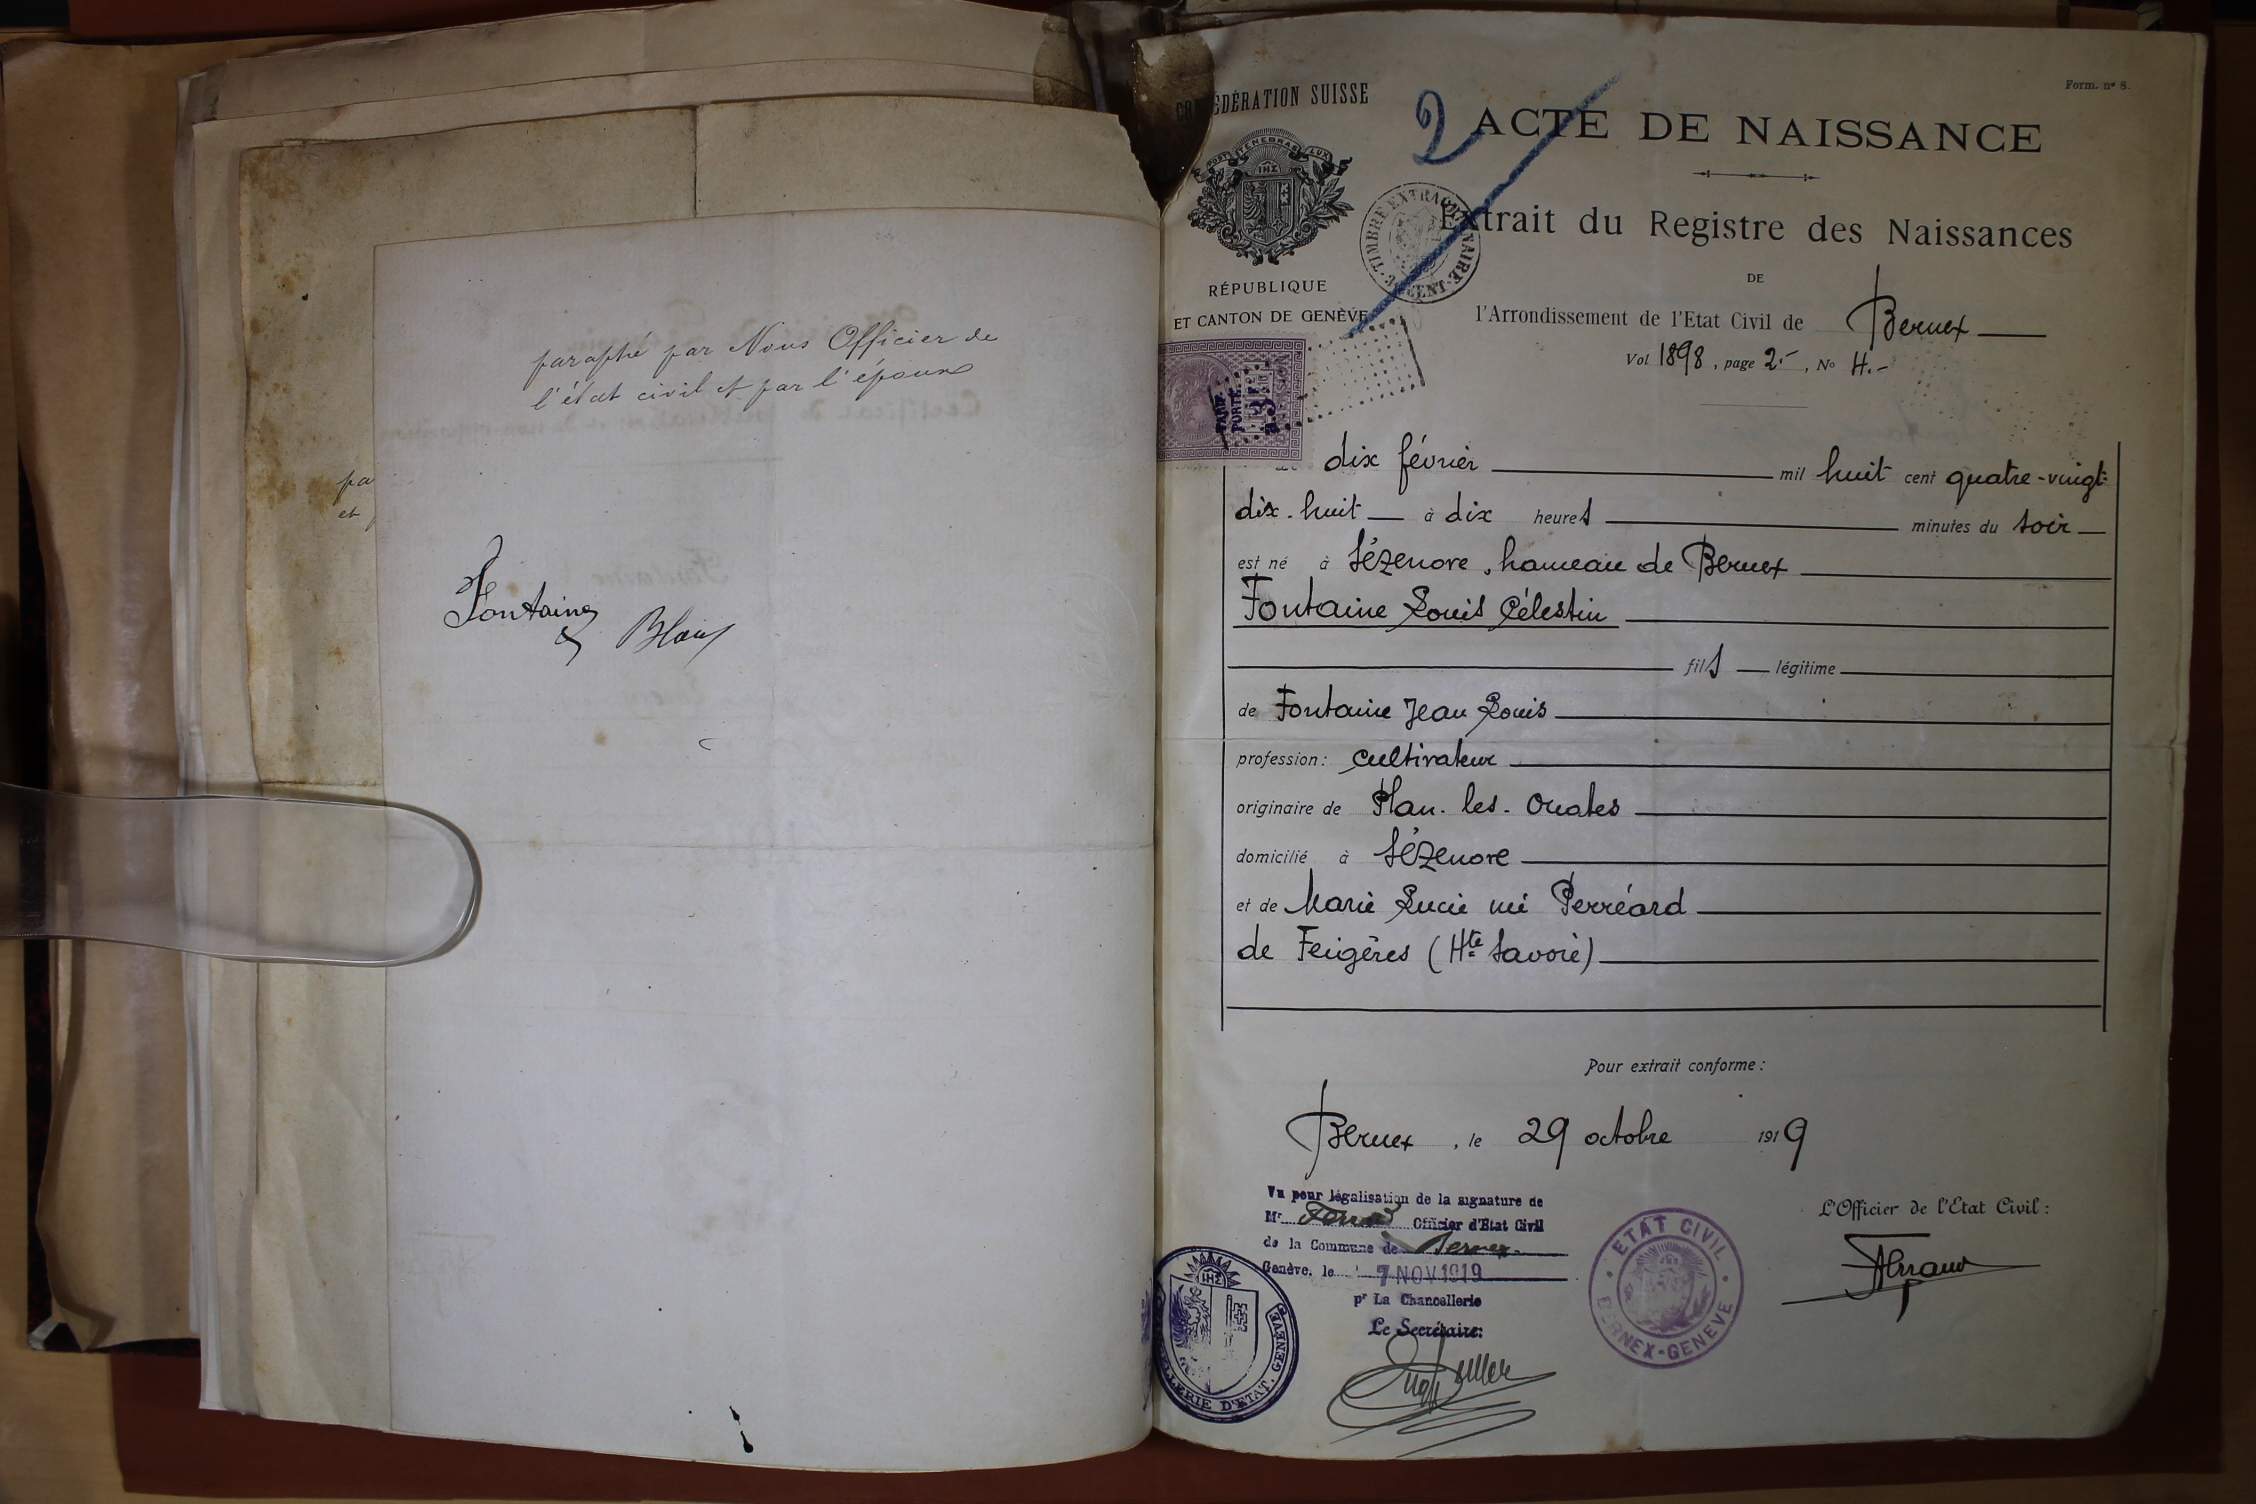 paraphé par Nous Officier de
l'état civil et par l'époux
pa
et
Fontaine
Blanc
CONFÉDÉRATION SUISSE
POST TENEBRAS LUX
IHS
RÉPUBLIQUE
ET CANTON DE GENÈVE
Form. nº 8.
2
ACTE DE NAISSANCE
TIMBRE EXTRAORDINAIRE
Extrait du Registre des Naissances
DE
l'Arrondissement de l'Etat Civil de Bernex
Vol 1898, page 2.-, Nº 4.-
dix février mil huit cent quatre-vingt-
dix-huit à dix heures minutes du soir
est né à Sézenove, hameau de Bernex
Fontaine Louis Célestin
fils légitime
de Fontaine Jean Louis
profession: cultivateur
originaire de Plan-les-Ouates
domicilié à Sézenove
et de Marie Lucie née Perréard
de Feigères (Hte Savoie)
Pour extrait conforme:
Bernex, le 29 octobre 1919
Vu pour légalisation de la signature de
Mr Officier d'Etat Civil
de la Commune de Bernex
Genève, le 7 NOV 1919
pr La Chancellerie
Le Secrétaire:
L'Officier de l'Etat Civil:
ETAT CIVIL
BERNEX-GENEVE
IHS
CHANCELLERIE D'ETAT. GENEVE